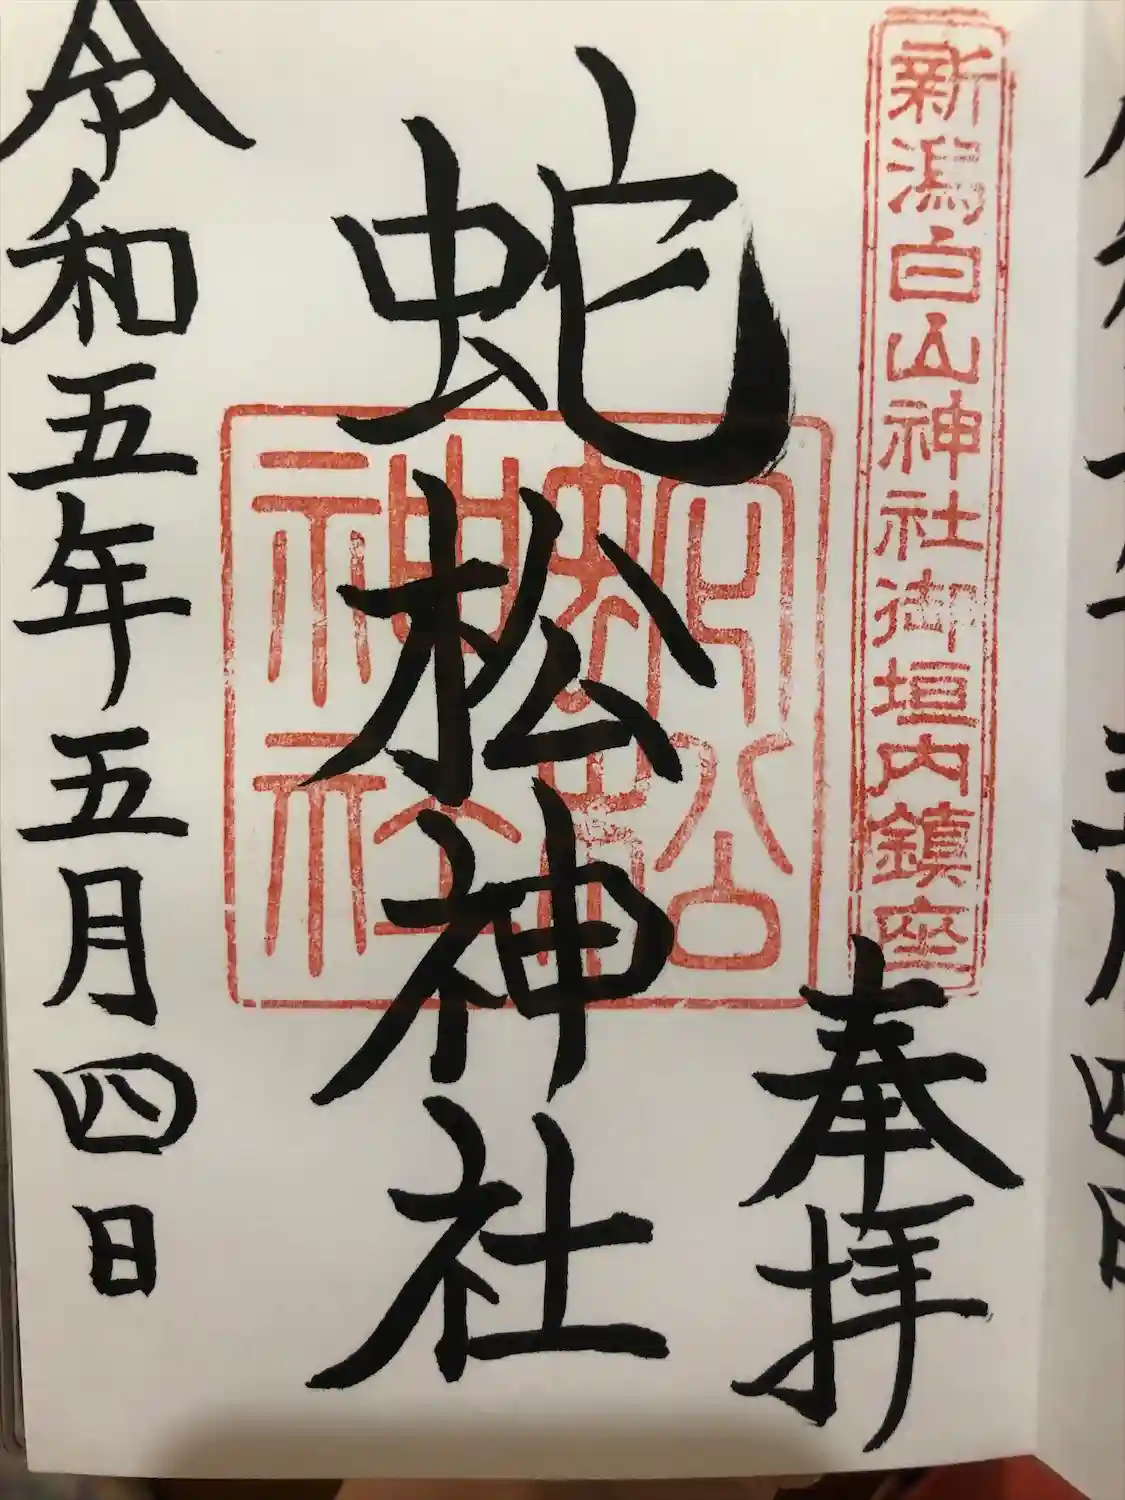 新潟白山神社御垣内鎮座
奉拝
蛇松神社
蛇松
神社
令和五年五月四日